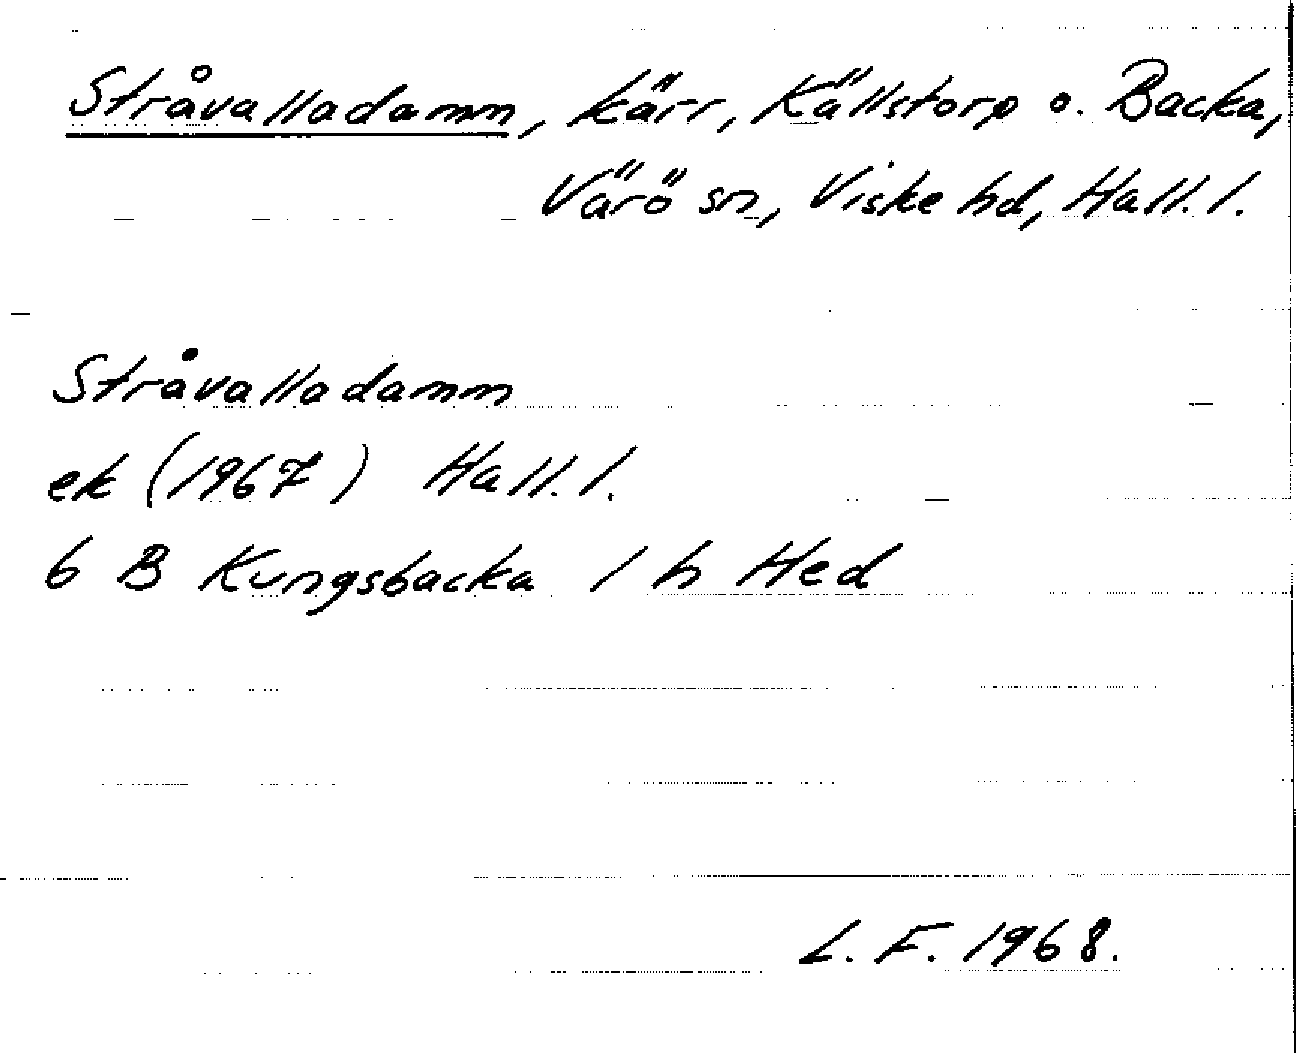 Stråvalladamm, kärr, Källstorp o. Backa,
Värö sn, Viske hd, Hall. l.
Stråvalladamm
ek (1967) Hall. l.
6 B Kungsbacka 1 h Hed
L. F. 1968.